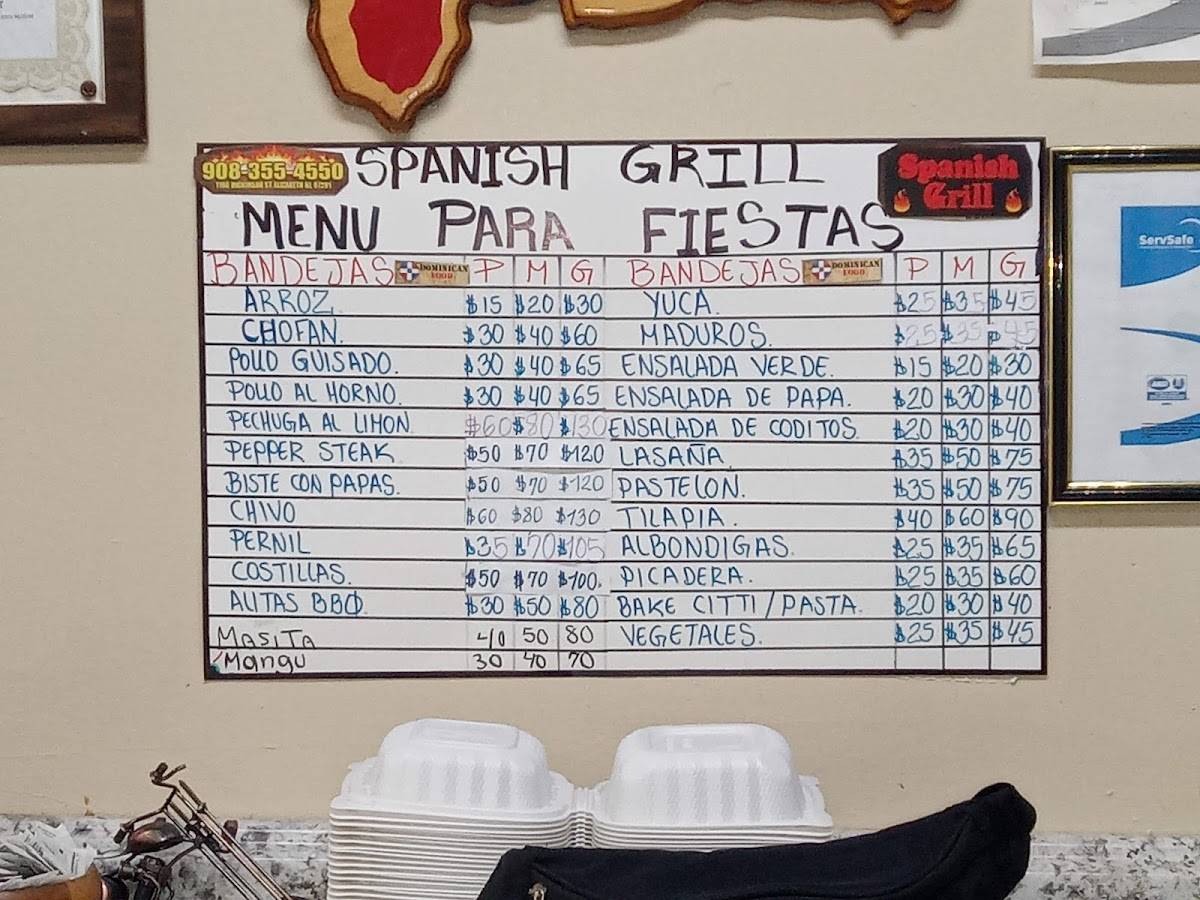 908-355-4550
SPANISH GRILL
Spanish Grill
MENU PARA FIESTAS
BANDEJAS DOMINICAN FOOD P M G BANDEJAS DOMINICAN FOOD P M G
ARROZ $15 $20 $30 YUCA. $25 $35 $45
CHOFAN. $30 $40 $60 MADUROS. $25 $35 $45
POLLO GUISADO. $30 $40 $65 ENSALADA VERDE. $15 $20 $30
POLLO AL HORNO. $30 $40 $65 ENSALADA DE PAPA. $20 $30 $40
PECHUGA AL LIMON $60 $80 $130 ENSALADA DE CODITOS. $20 $30 $40
PEPPER STEAK $50 $70 $120 LASAÑA. $35 $50 $75
BISTE CON PAPAS. $50 $70 $120 PASTELON. $35 $50 $75
CHIVO $60 $80 $130 TILAPIA. $40 $60 $90
PERNIL $35 $70 $105 ALBONDIGAS. $25 $35 $65
COSTILLAS. $50 $70 $100. PICADERA. $25 $35 $60
ALITAS BBQ. $30 $50 $80 BAKE CITTI/PASTA. $20 $30 $40
MASITA 40 50 80 VEGETALES. $25 $35 $45
Mangu 30 40 70
ServSafe